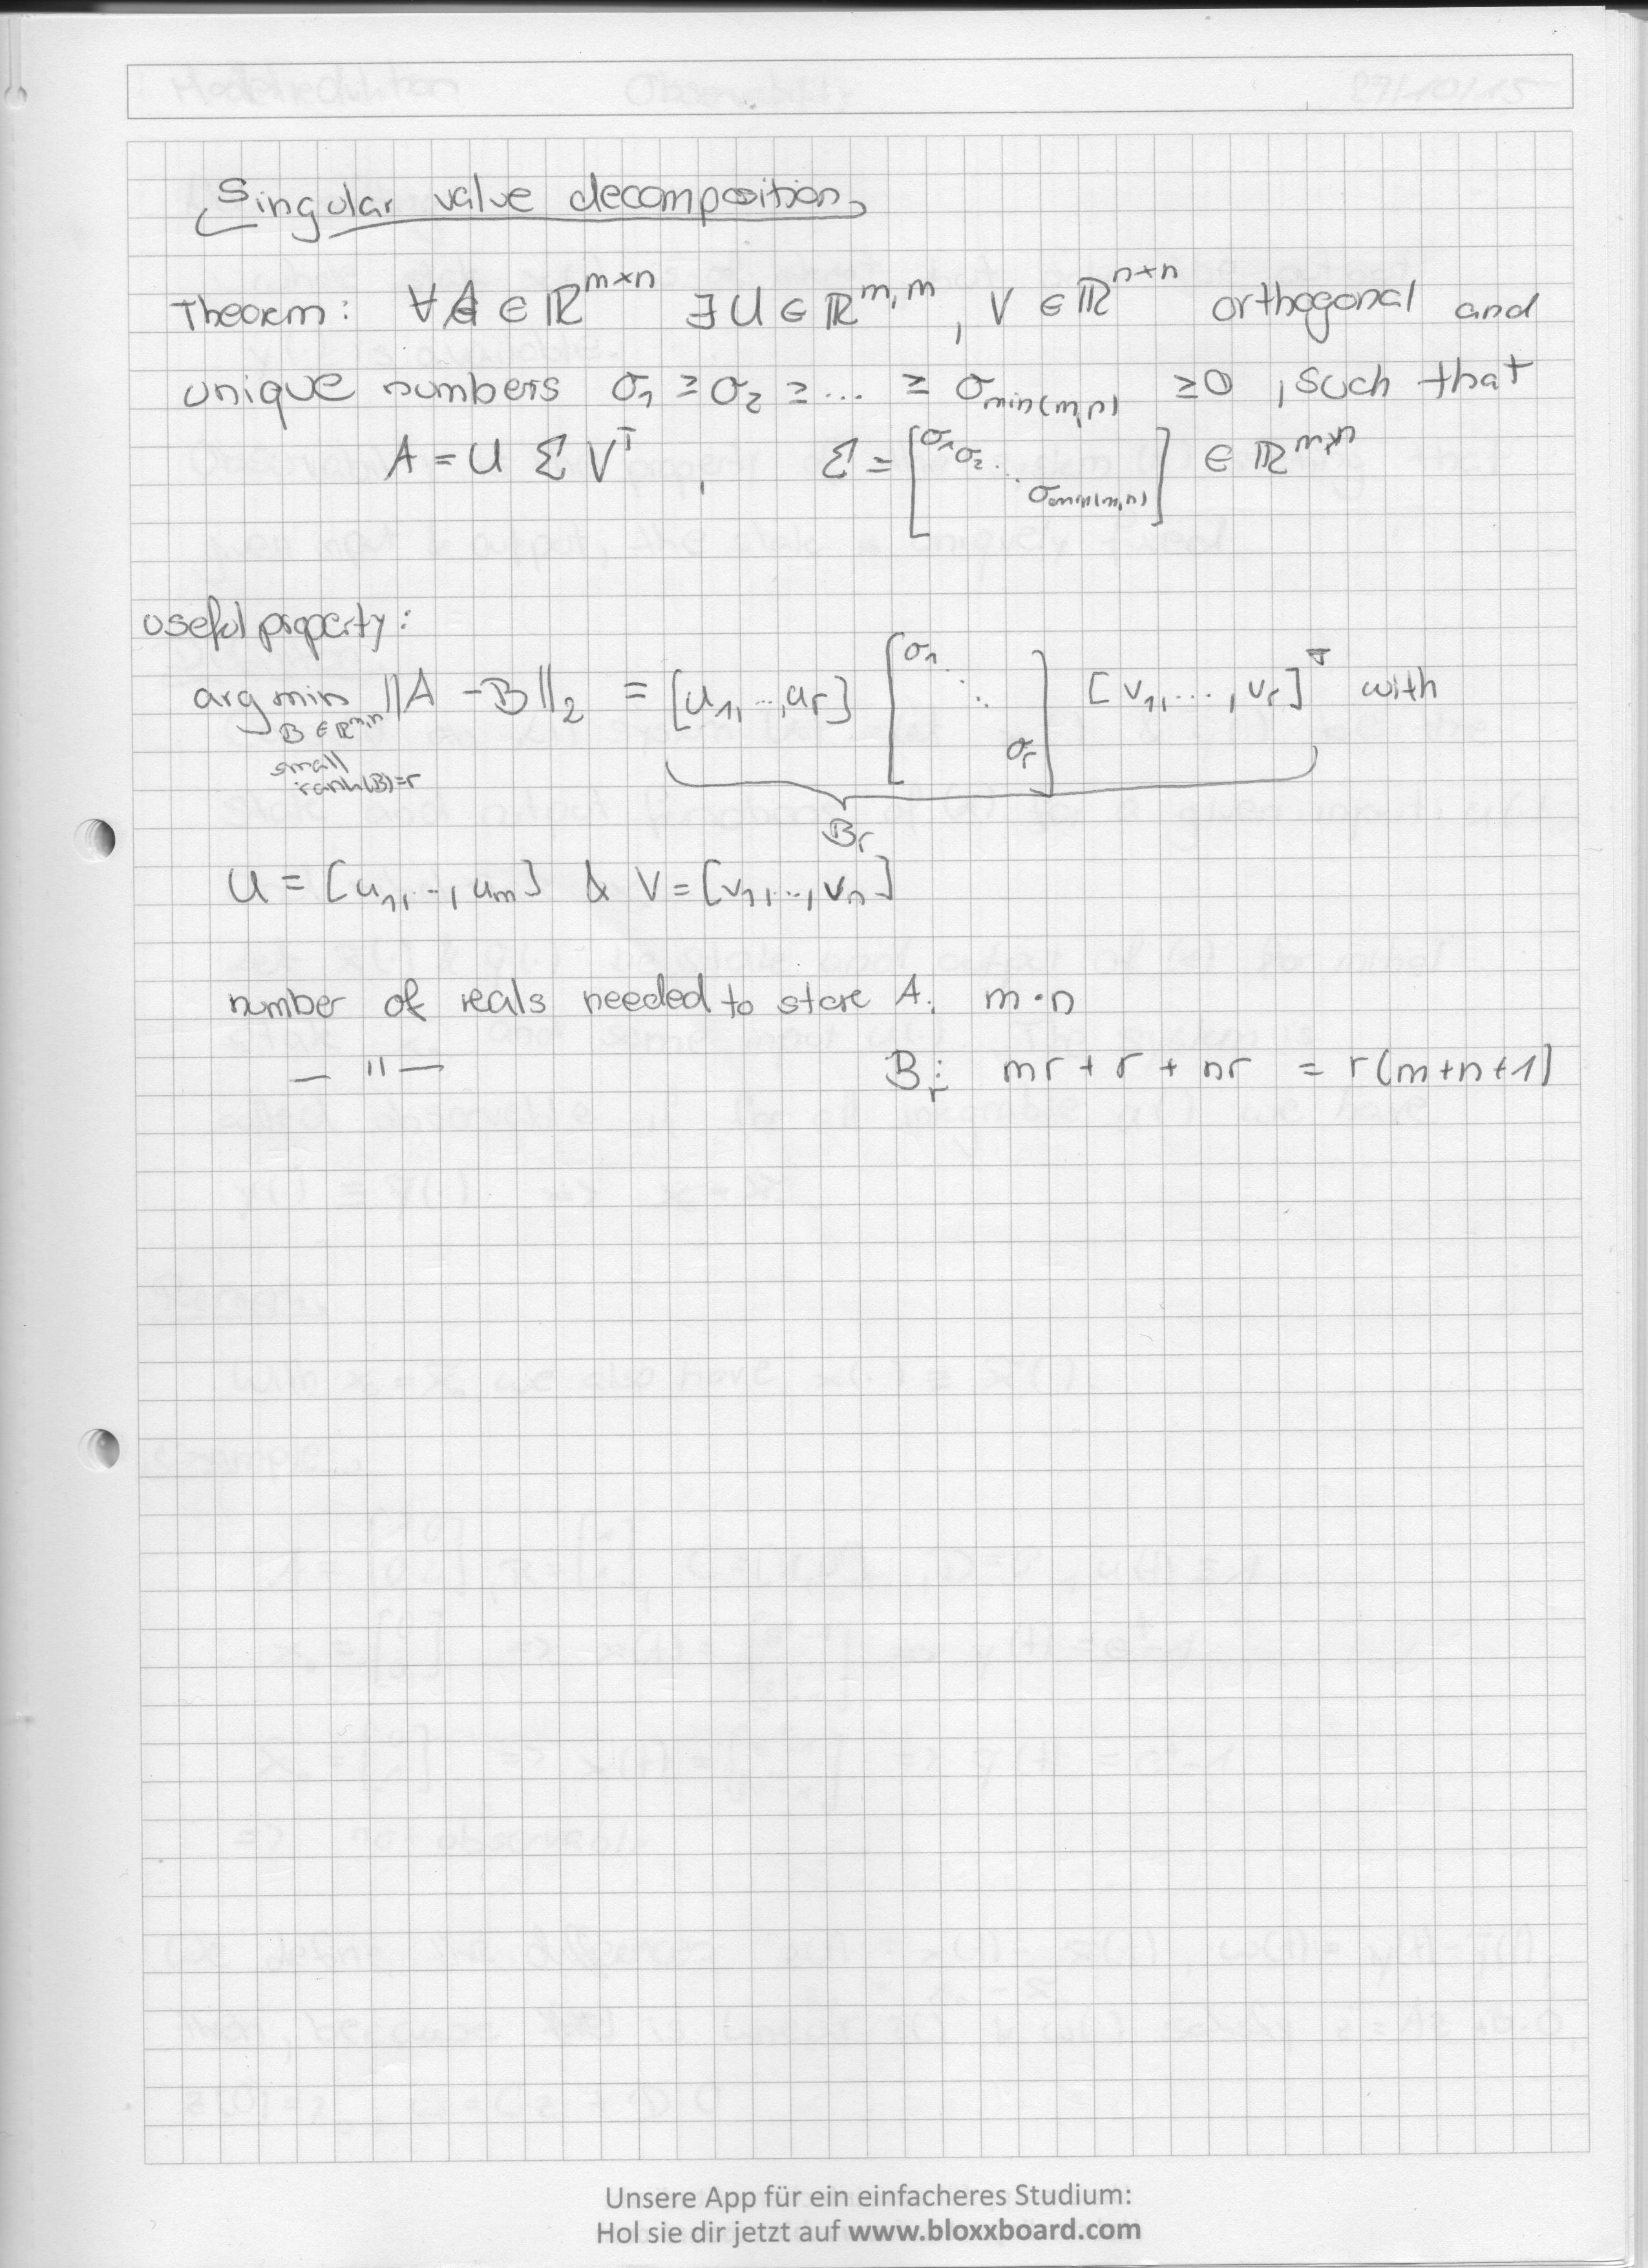 Singular value decomposition
Theorem: ∀A ∈ ℝ^{m×n} ∃ U ∈ ℝ^{m,m}, V ∈ ℝ^{n×n} orthogonal and
unique numbers σ₁ ≥ σ₂ ≥ ... ≥ σ_{min(m,n)} ≥ 0, such that
A = U Σ V^T, Σ = [σ₁ σ₂ ⋱ σ_{min(m,n)}] ∈ ℝ^{m×n}
Useful property:
arg min ||A - B||₂ = [u₁, ..., u_r] [σ₁ ⋱ σ_r] [v₁, ..., v_r]^T with
B ∈ ℝ^{m,n}
small
rank(B)=r
B_r
U = [u₁, ..., u_m] & V = [v₁, ..., v_n]
number of reals needed to store A: m·n
— " — B_r: mr + r + nr = r(m+n+1)
Unsere App für ein einfacheres Studium:
Hol sie dir jetzt auf www.bloxxboard.com